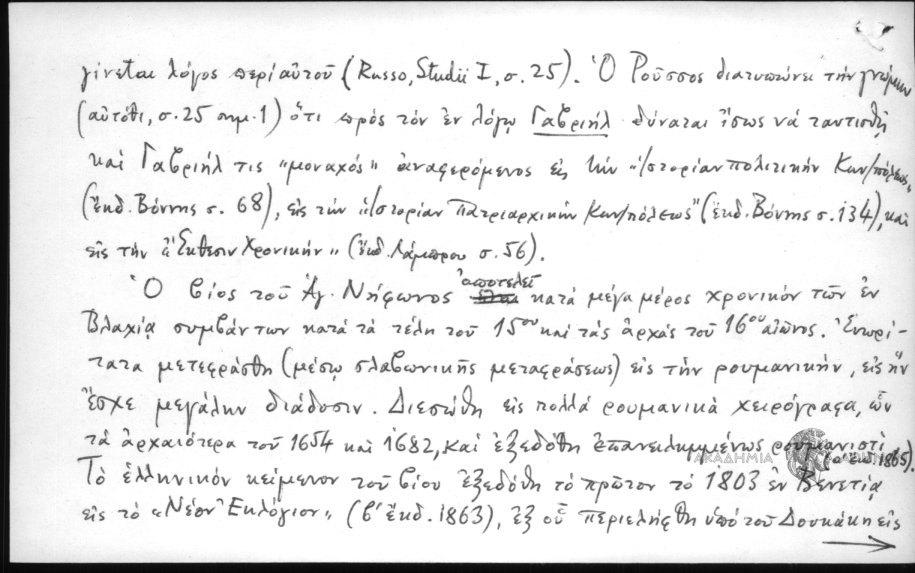 γίνεται λόγος περὶ αὐτοῦ (Russo, Studii I, σ. 25). Ὁ Ροῦσσος διατυπώνει τὴν γνώμην
(αὐτόθι, σ. 25 σημ. 1) ὅτι πρὸς τὸν ἐν λόγῳ Γαβριὴλ δύναται ἴσως νὰ ταυτισθῇ
καὶ Γαβριήλ τις "μοναχός" ἀναφερόμενος εἰς τὴν "Ἱστορίαν πολιτικὴν Κων/πόλεως,
(ἔκδ. Βόννης σ. 68), εἰς τὴν "Ἱστορίαν Πατριαρχικὴν Κων/πόλεως" (ἔκδ. Βόννης σ. 134), καὶ
εἰς τὴν "Ἔκθεσιν Χρονικήν" (ἔκδ. Λάμπρου σ. 56).
Ὁ βίος τοῦ Ἁγ. Νήφωνος ἀποτελεῖ κατὰ μέγα μέρος χρονικὸν τῶν ἐν
Βλαχίᾳ συμβάντων κατὰ τὰ τέλη τοῦ 15ου καὶ τὰς ἀρχὰς τοῦ 16ου αἰῶνος. Ἐνωρί-
τατα μετεφράσθη (μέσῳ σλαβωνικῆς μεταφράσεως) εἰς τὴν ρουμανικήν, εἰς ἣν
ἔσχε μεγάλην διάδοσιν. Διεσώθη εἰς πολλὰ ρουμανικὰ χειρόγραφα, ὧν
τὰ ἀρχαιότερα τοῦ 1654 καὶ 1682, καὶ ἐξεδόθη ἐπανειλημμένως ρουμανιστὶ
(α' ἔκδ. 1865).
ΑΚΑΔΗΜΙΑ
Τὸ ἑλληνικὸν κείμενον τοῦ βίου ἐξεδόθη τὸ πρῶτον τὸ 1803 ἐν Βενετίᾳ
εἰς τὸ «Νέον Ἐκλόγιον» (β' ἔκδ. 1863), ἐξ οὗ περιελήφθη ὑπὸ τοῦ Δουκάκη εἰς